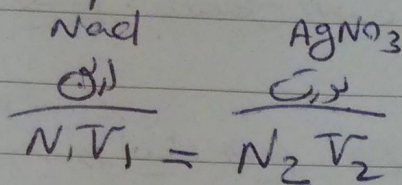 NaCl AgNO3
N1V1 = N2V2